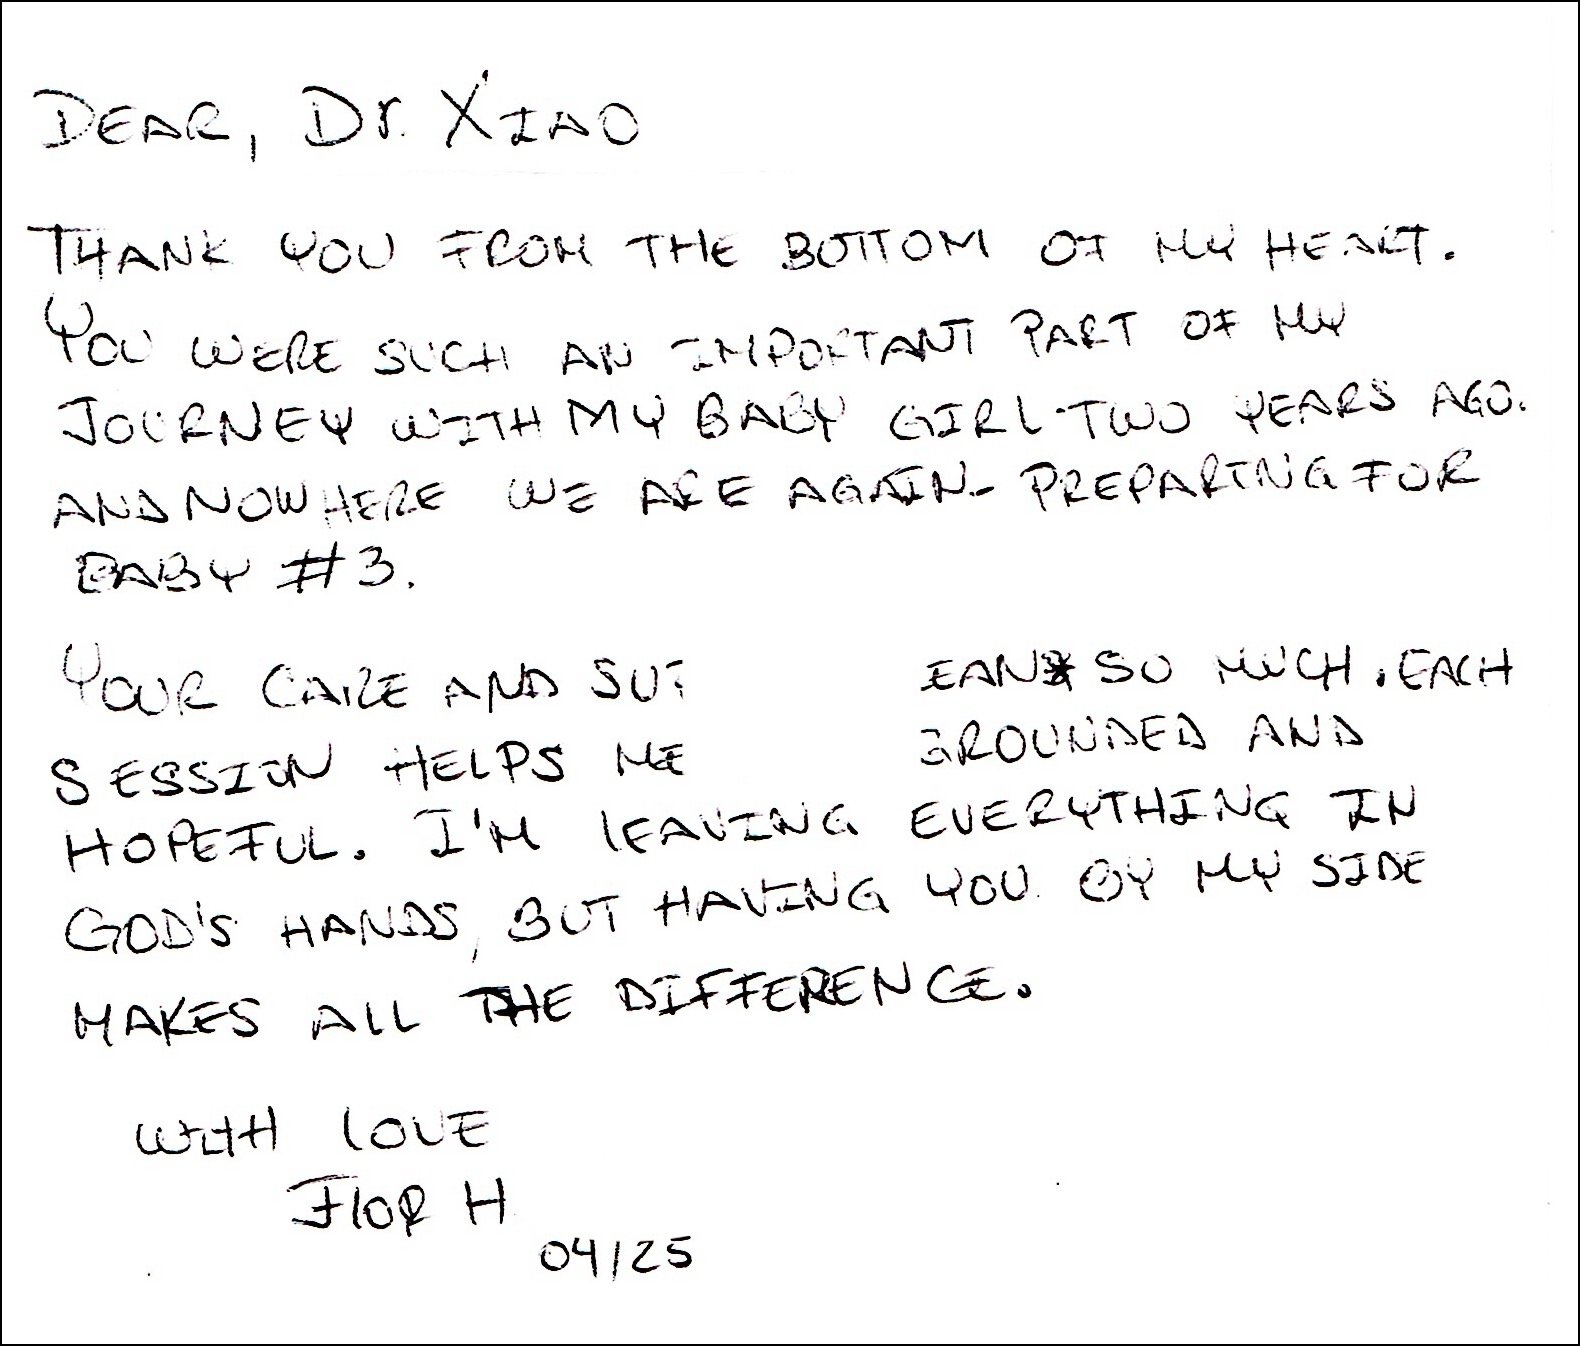 DEAR, Dr. XIAO
THANK YOU FROM THE BOTTOM OF MY HEART.
YOU WERE SUCH AN IMPORTANT PART OF MY
JOURNEY WITH MY BABY GIRL TWO YEARS AGO.
AND NOW HERE WE ARE AGAIN- PREPARING FOR
BABY #3.
YOUR CARE AND SO MUCH. EACH
SESSION HELPS ME GROUNDED AND
HOPEFUL. I'M LEAVING EVERYTHING IN
GOD'S HANDS, BUT HAVING YOU BY MY SIDE
MAKES ALL THE DIFFERENCE.
WITH LOVE
FLOR H
04/25